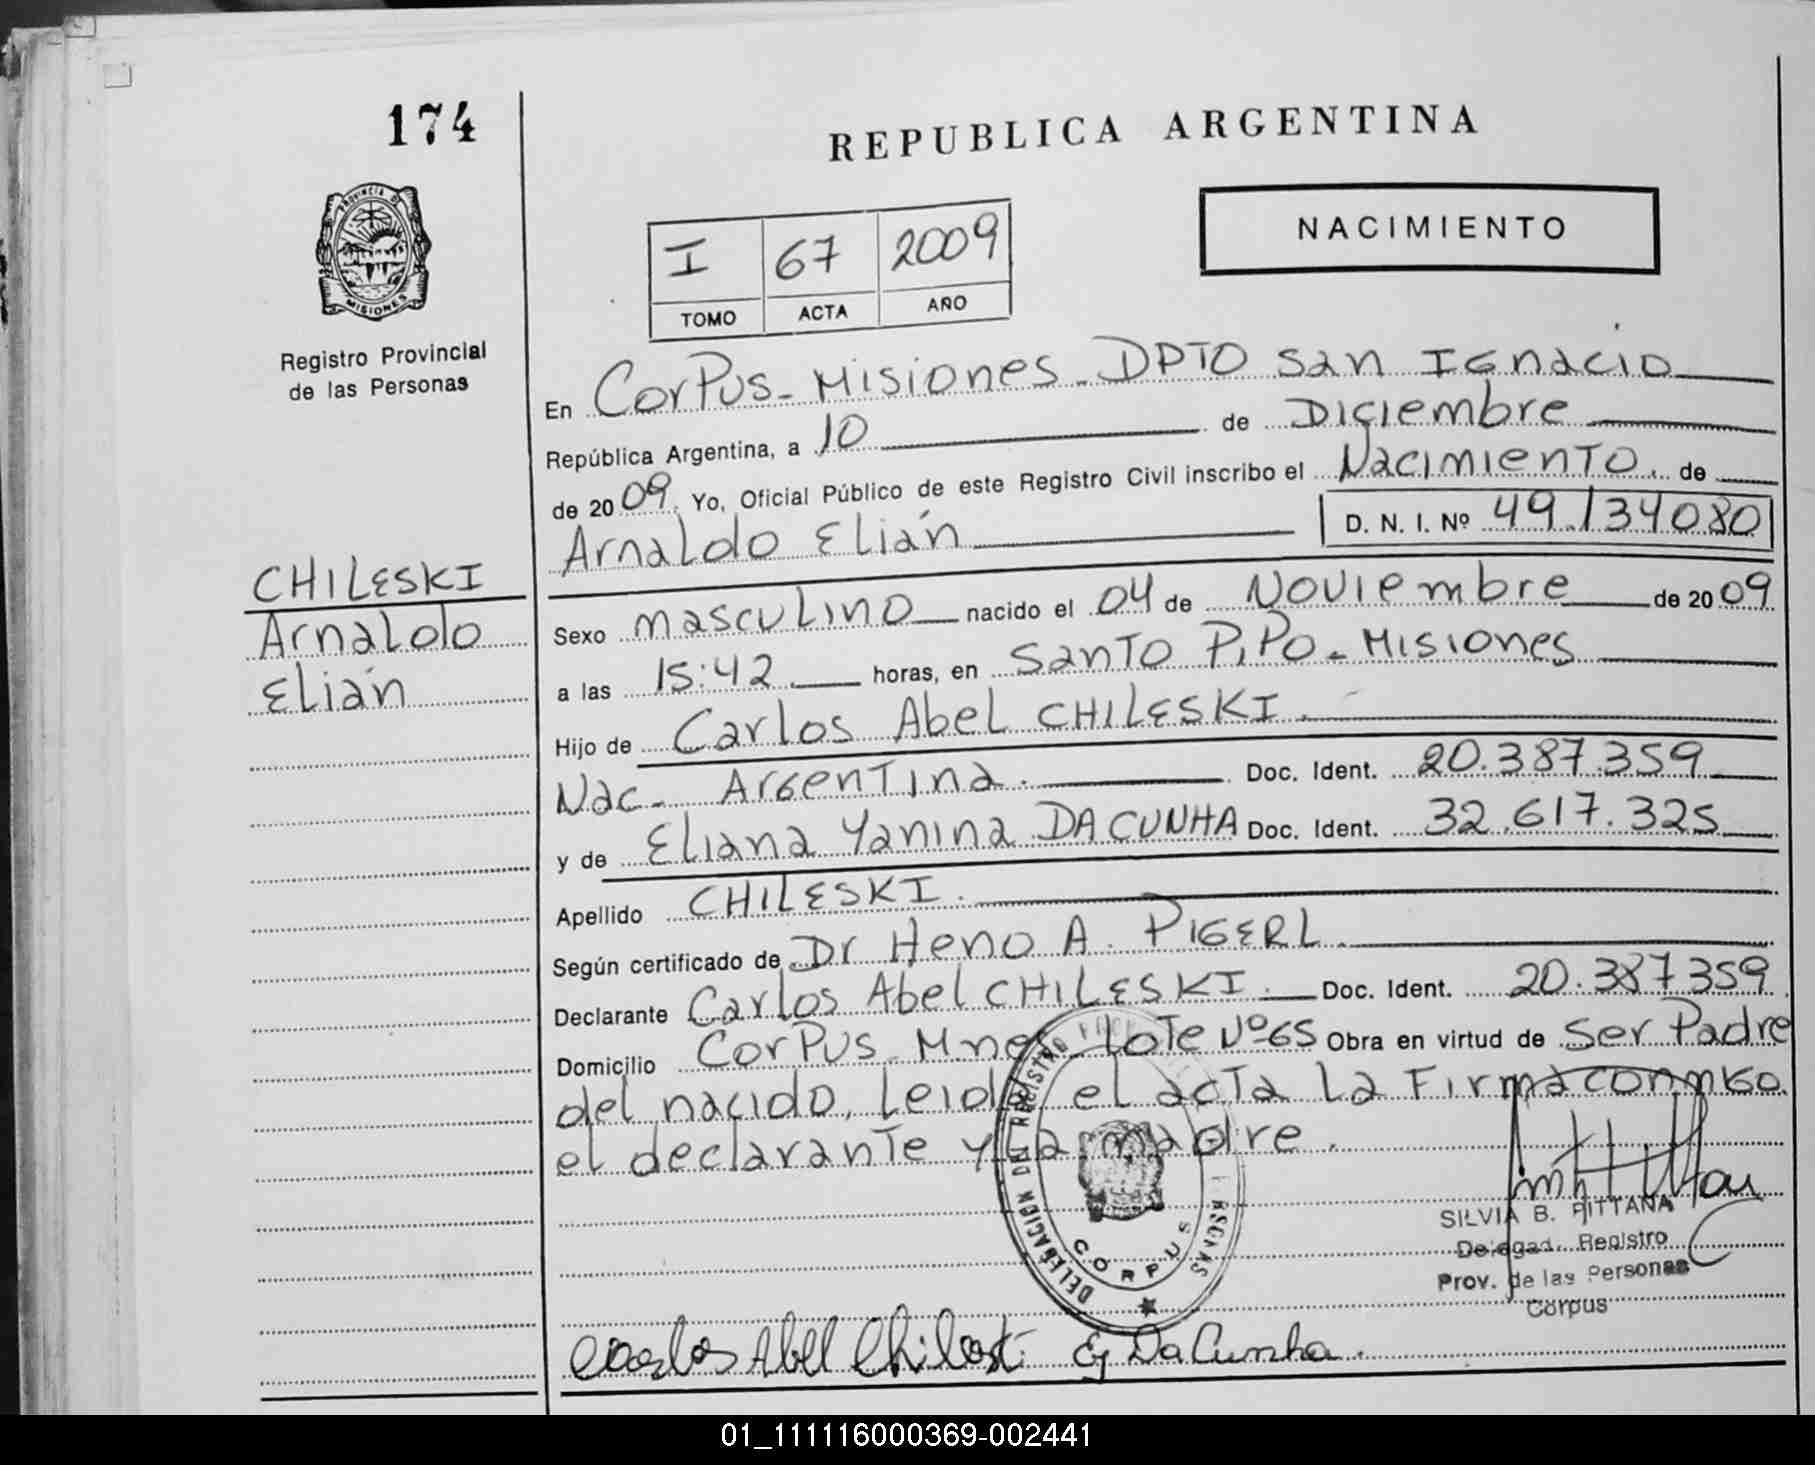 174
REPUBLICA ARGENTINA
PROVINCIA DE
MISIONES
Registro Provincial
de las Personas
NACIMIENTO
I 67 2009
TOMO ACTA AÑO
En Corpus - Misiones - DPTO San Ignacio
República Argentina, a 10 de Diciembre
de 2009. Yo, Oficial Público de este Registro Civil inscribo el Nacimiento. de
Arnaldo Elián D. N. I. Nº 49.134080
CHILESKI
Arnaldo
Elián
Sexo masculino nacido el 04 de Noviembre de 2009
a las 15:42 horas, en Santo Pipo - Misiones
Hijo de Carlos Abel CHILESKI.
Nac. Argentina. Doc. Ident. 20.387.359
y de Eliana Yanina DA CUNHA Doc. Ident. 32.617.325
Apellido CHILESKI.
Según certificado de Dr Heno A. PIGERL.
Declarante Carlos Abel CHILESKI. Doc. Ident. 20.387.359
Domicilio Corpus - Mnes - Lote Nº 65 Obra en virtud de Ser Padre
del nacido, leida el acta la Firma conmigo
el declarante y la madre.
DELEGACION DEL REGISTRO
CORPUS
SILVIA B. PITTANA
Delegad. Registro
Prov. de las Personas
Corpus
Carlos Abel Chileski EY Da Cunha.
01_111116000369-002441